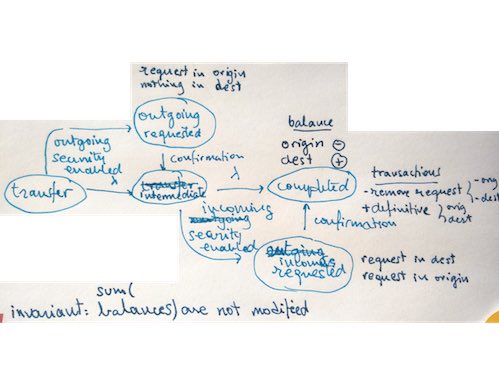 request in origin
nothing in dest
outgoing
requested
balance
origin ⊖
dest ⊕
outgoing
security
enabled
λ
confirmation
λ
transfer
transfer
intermediate
completed
transactions
- remove request { -orig
-dest
+ definitive { orig
dest
incoming
outgoing
security
enabled
confirmation
outgoing
incoming
requested
request in dest
request in origin
sum(
invariant: balances) are not modified